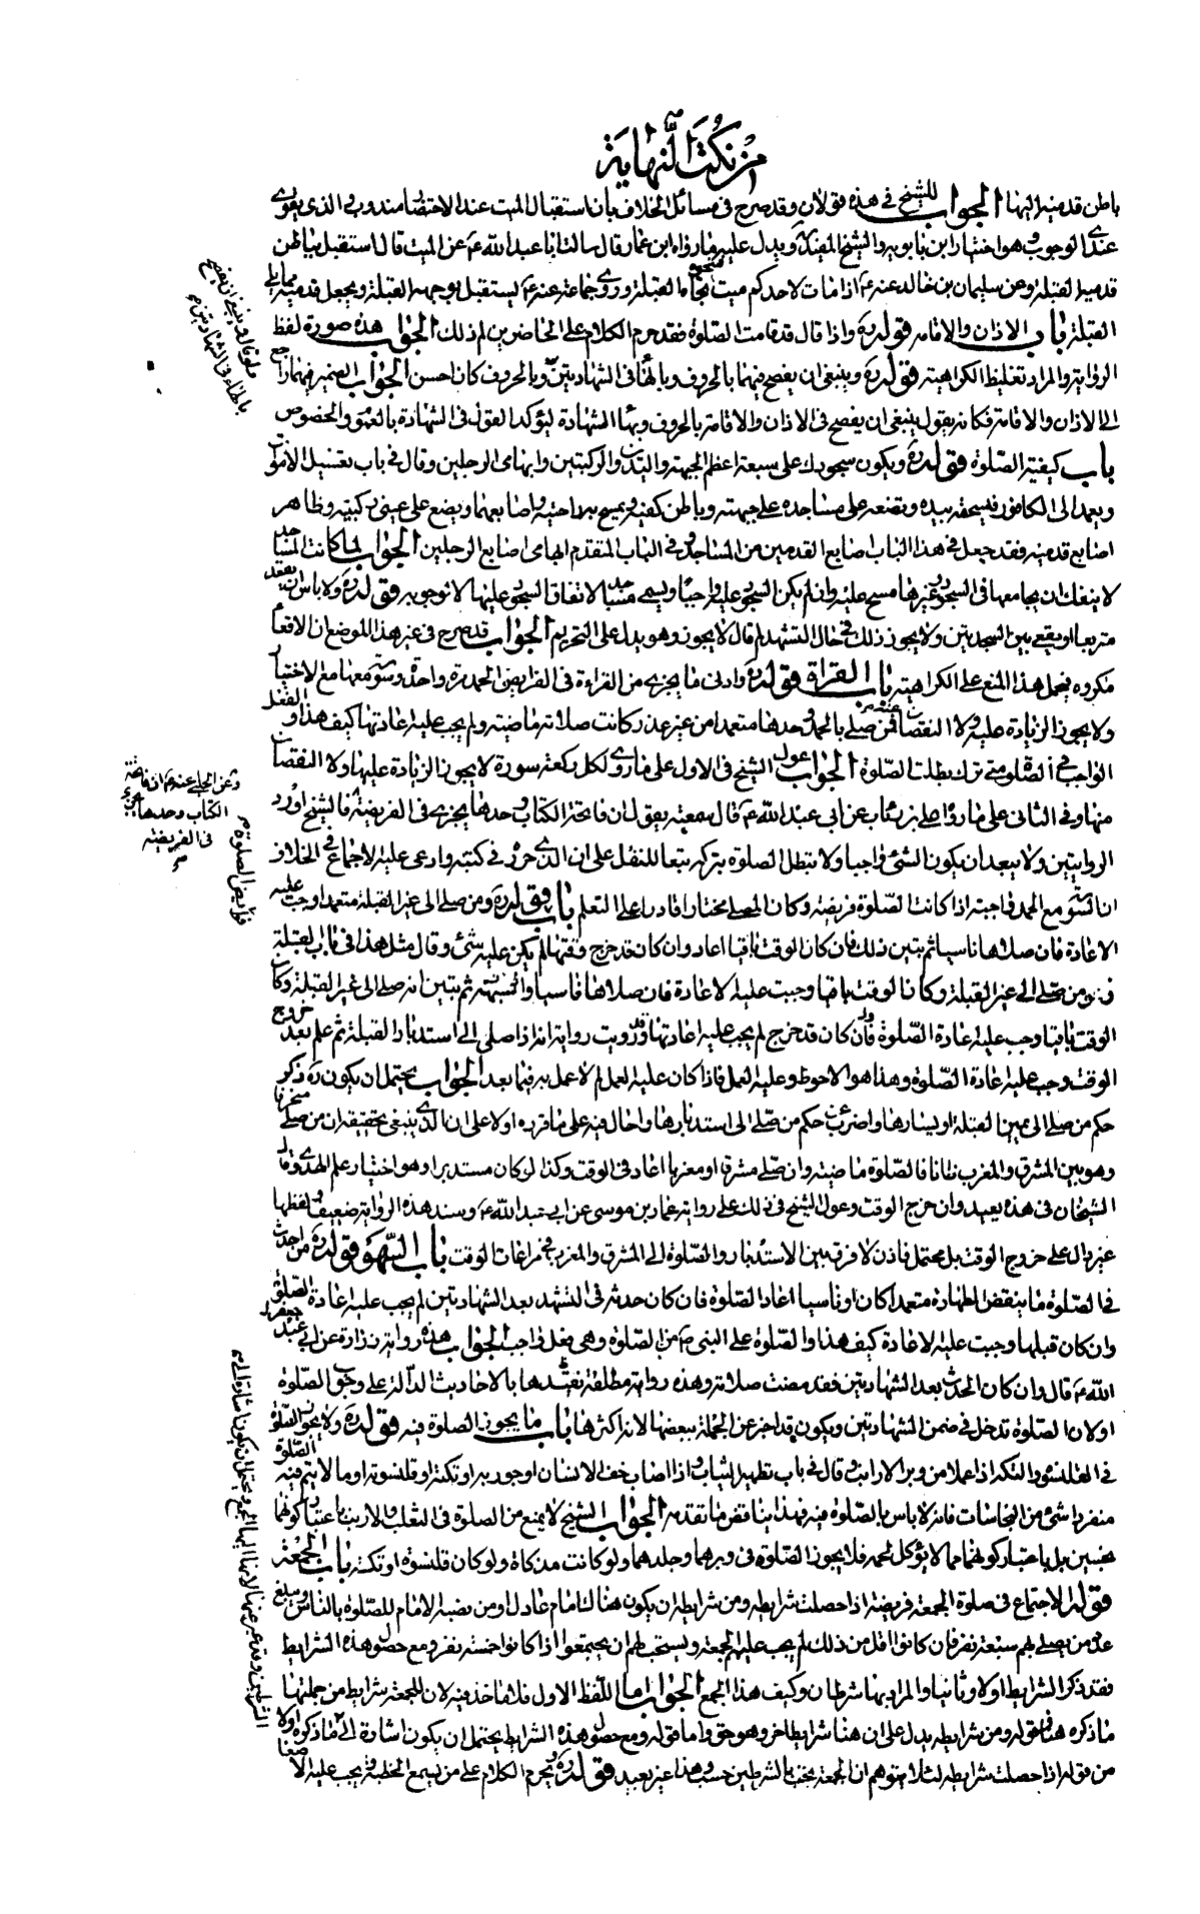 من نكت النهاية
باطن قدميه اليها الجواب للشيخ في هذه قولان وقد صرح في مسائل الخلاف بان استقبال الميت عند الاحتضار مندوب والذي يقوى
عندي الوجوب وهو اختيار ابن بابويه والشيخ المفيد ويدل عليه ما رواه ابن عمار قال سالت ابا عبد الله ع عن الميت قال استقبل بباطن
قدميه القبلة وعن سليمان بن خالد عنه ع اذا مات لاحدكم ميت فسجوه تجاه القبلة وروى جماعة عنه ع يستقبل بوجهه القبلة ويجعل قدميه مما يلي
القبلة باب الاذان والاقامة قوله ره واذا قال قد قامت الصلوة فقد حرم الكلام على الحاضرين لم ذلك الجواب هذه صورة لفظ
الرواية والمراد تغليظ الكراهية قوله ره وينبغي ان يفصح فيهما بالحروف وبالهاء في الشهادتين ولو قال وبالحروف كان احسن الجواب الضمير فيهما راجع
الى الاذان والاقامة فكانه يقول ينبغي ان يفصح في الاذان والاقامة بالحروف وبهاء الشهادة ليؤكد القول في الشهادة بالعموم والخصوص
باب كيفية الصلوة قوله ره ويكون سجودك على سبعة اعظم الجبهة واليدين والركبتين وابهامي الرجلين وقال في باب تغسيل الاموات
ويعمد الى الكافور فيسحقه بيده وتضعه على مساجده على جبهته وباطن كفيه ويمسح به راحتيه واصابعهما ويضع على عيني ركبتيه وظاهر
اصابع قدميه فقد جعل في هذا الباب اصابع القدمين من المساجد وفي الباب المتقدم ابهامي اصابع الرجلين الجواب لما كانت المساجد
لا ينفك ان يجامعها في السجود غيرها مسح عليه وان لم يكن السجود عليه واجبا ويسمى مسجدا لاتفاق السجود عليها لا لوجوبه قوله ره ولا باس ان يقعد
متربعا او يقعي بين السجدتين ولا يجوز ذلك في حال التشهد لم قال لا يجوز وهو يدل على التحريم الجواب قد صرح في غير هذا الموضع ان الاقعاء
مكروه فيحمل هذا المنع على الكراهية باب القراءة قوله ره وادنى ما يجزي من القراءة في الفرايض الحمد مرة واحدة وسورة معها مع الاختيار
ولا يجوز الزيادة عليه ولا النقصان عنه فمن صلى بالحمد وحدها متعمدا من غير عذر كانت صلاته ماضية ولم يجب عليه اعادتها كيف هذا والفعل
الواجب في الصلوة متى ترك بطلت الصلوة الجواب عول الشيخ في الاول على ما روي لكل ركعة سورة لا يجوز الزيادة عليها ولا النقصان
منها وفي الثاني على ما رواه علي بن رئاب عن ابي عبد الله ع قال سمعته يقول ان فاتحة الكتاب وحدها يجزي في الفريضة فالشيخ اورد
الروايتين ولا يبعد ان يكون الشئ واجبا ولا تبطل الصلوة بتركه تبعا للنقل على ان الذي حرره في كتبه وادعى عليه الاجماع في الخلاف
ان السورة مع الحمد واجبة اذا كانت الصلوة فريضة وكان المصلي مختارا قادرا على التعلم باب قوله ره ومن صلى الى غير القبلة متعمدا وجبت عليه
الاعادة فان صلاها ناسيا ثم تبين ذلك فان كان الوقت باقيا اعاد وان كان قد خرج وقتها لم يكن عليه شئ وقال مثل هذا في باب القبلة
فقال ومن صلى الى غير القبلة وكان الوقت باقيا وجبت عليه الاعادة فان صلاها ناسيا او لشبهة ثم تبين انه صلى الى غير القبلة وكان
الوقت باقيا وجب عليه اعادة الصلوة فان كان قد خرج لم يجب عليه اعادتها وقد رويت رواية انه اذا صلى الى استدبار القبلة ثم علم بعد خروج
الوقت وجب عليه اعادة الصلوة وهذا هو الاحوط وعليه العمل فاذا كان عليه العمل لم لا عمل به فيما بعد الجواب يحتمل ان يكون ره ذكر
حكم من صلى الى يمين القبلة او يسارها واضرب عن حكم من صلى الى استدبارها واحال فيه على ما قرره اولا على ان الذي ينبغي تحقيقه ان من صلى منحرفا
وهو بين المشرق والمغرب ظانا فالصلوة ماضية وان صلى مشرقا او مغربا اعاد في الوقت وكذا لو كان مستدبرا وهو اختيار علم الهدى وقال
الشيخان في هذه يعيد وان خرج الوقت وعول الشيخ في ذلك على رواية عمار بن موسى عن ابي عبد الله ع وسند هذه الرواية ضعيف ولفظها
غير دال على خروج الوقت بل محتمل فاذن لا فرق بين الاستدبار والصلوة الى المشرق والمغرب في مراعات الوقت باب السهو قوله ره من احدث
في الصلوة ما ينقض الطهارة متعمدا كان او ناسيا اعاد الصلوة فان كان حدثه في التشهد بعد الشهادتين لم يجب عليه اعادة الصلوة
وان كان قبلها وجبت عليه الاعادة كيف هذا والصلوة على النبي ص من الصلوة وهي فعل واجب الجواب هذه رواية زرارة عن ابي عبد
الله ع قال وان كان الحدث بعد الشهادتين فقد مضت صلاته وهذه رواية مطلقة نقيدها بالاحاديث الدالة على وجوب الصلوة
او لان الصلوة تدخل في ضمن الشهادتين ويكون قد اخبر عن الجملة ببعضها لانه اكثرها باب ما يجوز الصلوة فيه قوله ره ولا يجوز الصلوة
في القلنسوة والتكة اذا عملا من وبر الارانب وقال في باب تطهير الثياب واذا اصاب خف الانسان او جوربه او تكته او قلنسوته او ما لا يتم فيه الصلوة
منفردا شئ من النجاسات فانه لا باس بالصلوة فيه فهذا يناقض ما تقدمه الجواب الشيخ لا يمنع من الصلوة في الثعلب والارنب باعتبار كونهما
نجسين بل باعتبار كونهما مما لا يؤكل لحمه فلا يجوز الصلوة في وبرهما وجلدهما ولو كانت مذكاة ولو كان قلنسوة او تكة باب الجمعة
قوله الاجتماع في صلوة الجمعة فريضة اذا حصلت شرايطه ومن شرايطه ان يكون هناك امام عادل او من نصبه الامام للصلوة بالناس ويبلغ
عدد من يصلي بهم سبعة نفر فان كانوا اقل من ذلك لم يجب عليهم الجمعة ويستحب لهم ان يجتمعوا اذا كانوا خمسة نفر ومع حصول هذه الشرايط
فقد ذكر الشرايط اولا وثانيا والمراد بها شرطان وكيف هذا الجمع الجواب اما اللفظ الاول فلا مأخذ فيه لان للجمعة شرايط من جملتها
ما ذكره هنا فقوله ومن شرايطه يدل على ان هنا شرايط اخر وهو حق واما قوله ومع حصول هذه الشرايط يحتمل ان يكون اشارة الى ما ذكره اولا
من قوله اذا حصلت شرايطه لئلا يتوهم ان الجمعة يجب بالشرطين حسب وهذا غير بعيد قوله ره ويحرم الكلام على من يسمع الخطبة ويجب عليه الاصغاء
فلو قال وينبغي ان يفصح
بالهاء في الشهادتين
وعن الحلبي عنه ع ان فاتحة
الكتاب وحدها تجزي
في الفريضة
فرايض الصلوة